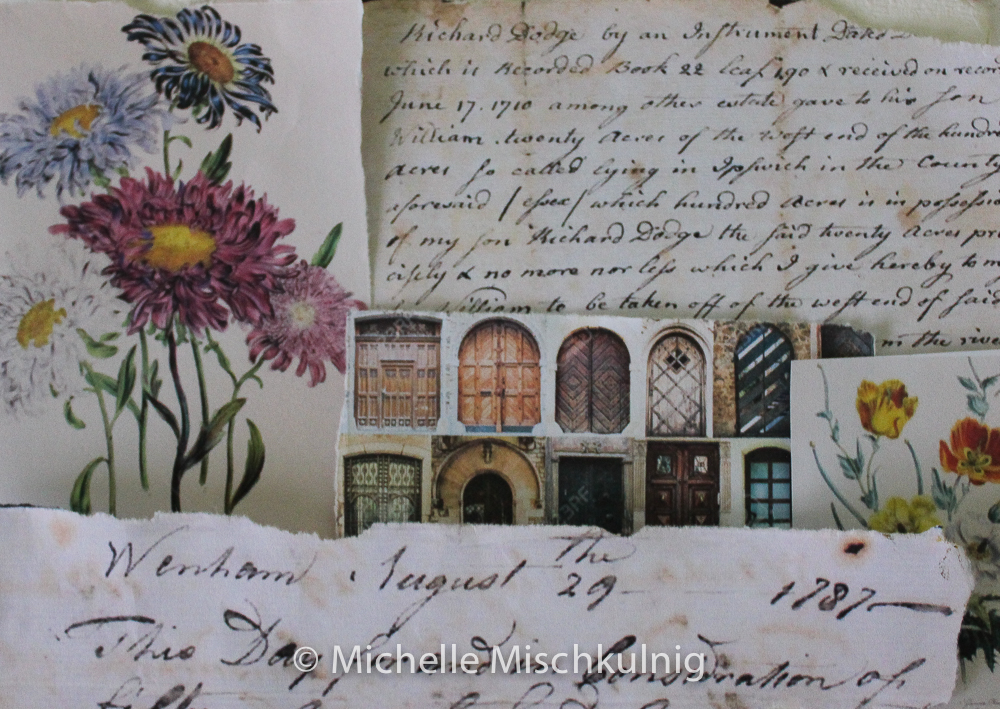 Richard Dodge by an Instrument Dated
which is Recorded Book 22 leaf 190 & received on record
June 17. 1710 among other estate gave to his Son
William twenty Acres of the west end of the hundred
Acres So called lying in Ipswich in the County
aforesaid / Essex / which hundred Acres is in possessi
of my son Richard Dodge the said twenty Acres pre
cisely & no more nor less which I give hereby to m
William to be taken off of the west end of said
in the rive
Wenham August the 29 1787
This Day in Consideration of
© Michelle Mischkulnig